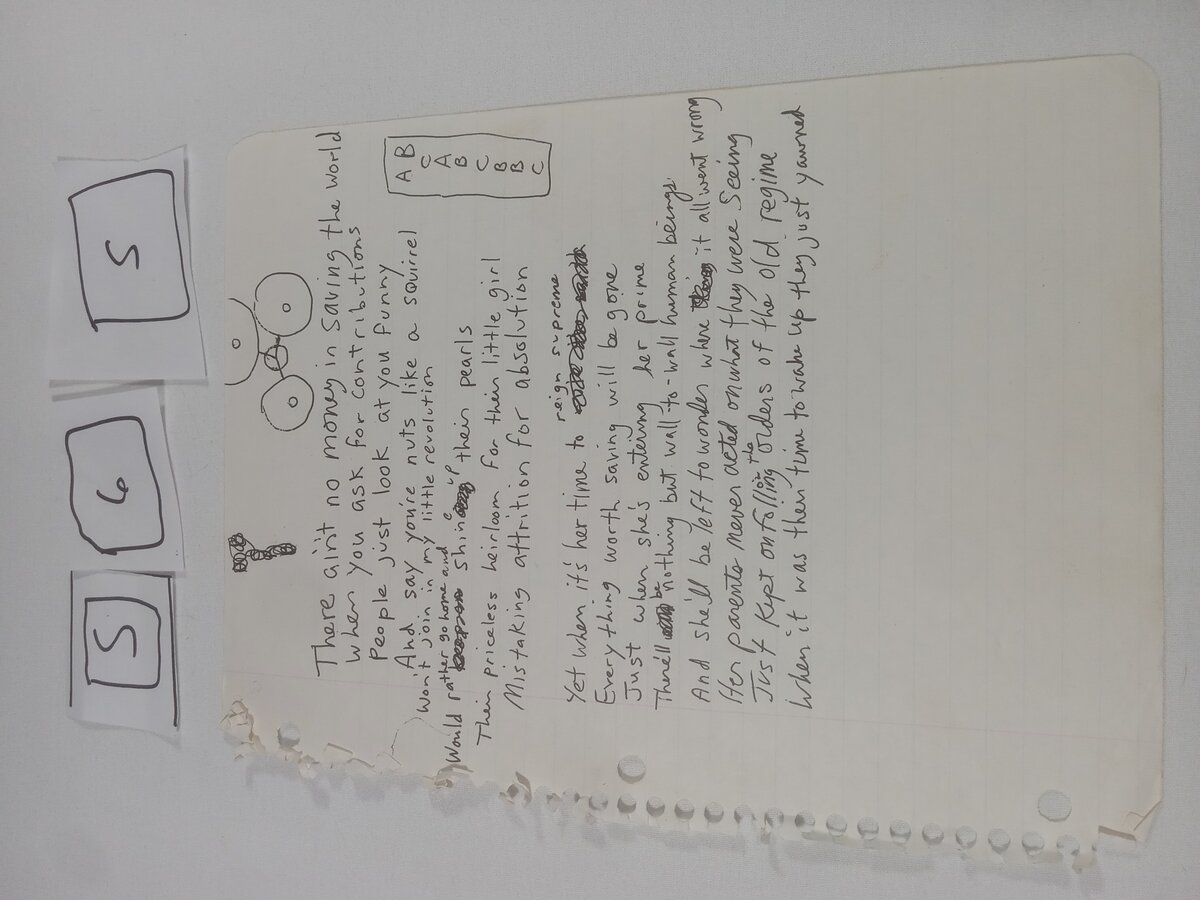 5 6 5
There ain't no money in saving the world
When you ask for contributions
People just look at you funny
And say you're nuts like a squirrel
Won't join in my little revolution
Would rather go home and shine up their pearls
Their priceless heirloom for their little girl
Mistaking attrition for absolution
A B
C
A
B
C
B
B
C
Yet when it's her time to reign supreme
Everything worth saving will be gone
Just when she's entering her prime
There'll be nothing but wall-to-wall human beings
And she'll be left to wonder where it all went wrong
Her parents never acted on what they were seeing
Just kept on following the orders of the old regime
When it was their time to wake up they just yawned